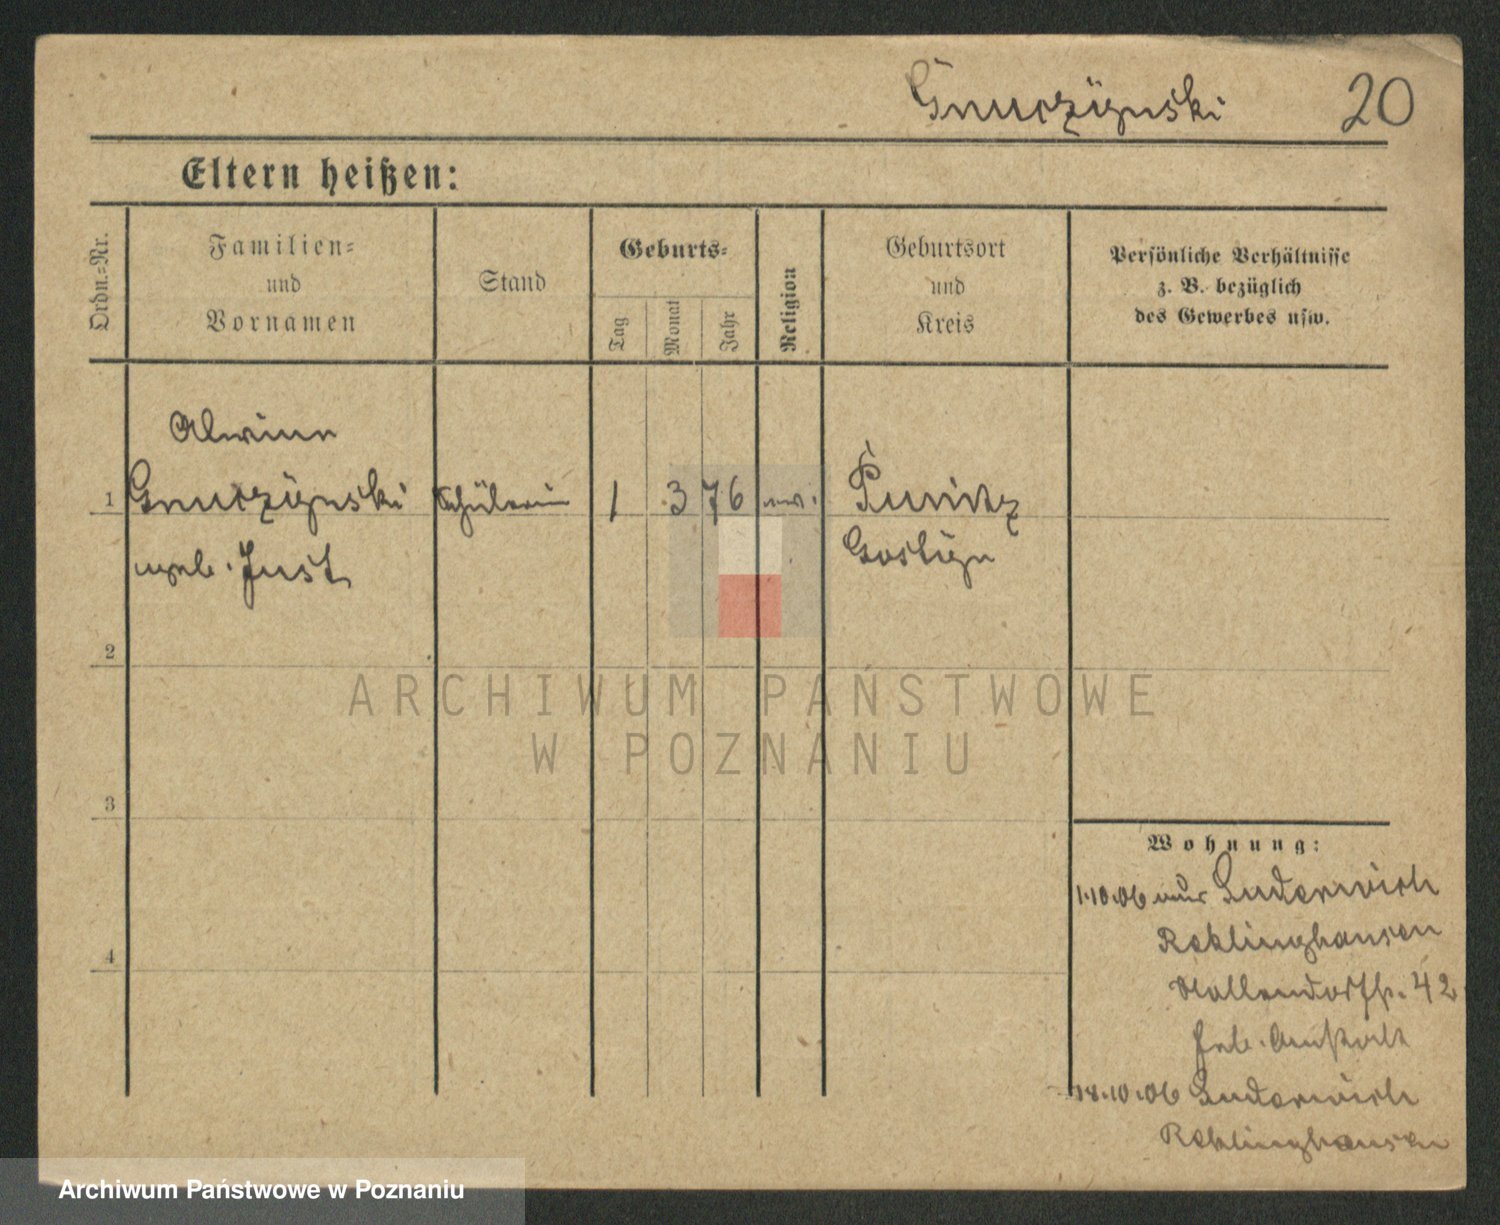 20
Eltern heißen:
Ordn.-Nr.
Familien-
und
Vornamen
Stand
Geburts-
Tag
Monat
Jahr
Religion
Geburtsort
und
Kreis
Persönliche Verhältnisse
z. B. bezüglich
des Gewerbes usw.
Alwine
1 Schülerin 1 3 76 ev. Punitz
geb. Just
Gostyn
2
3
4
Wohnung:
1.10.06 Suderwich
Reklinghausen
42
Anstalt
18.10.06 Suderwich
Reklinghausen
ARCHIWUM PAŃSTWOWE
W POZNANIU
Archiwum Państwowe w Poznaniu